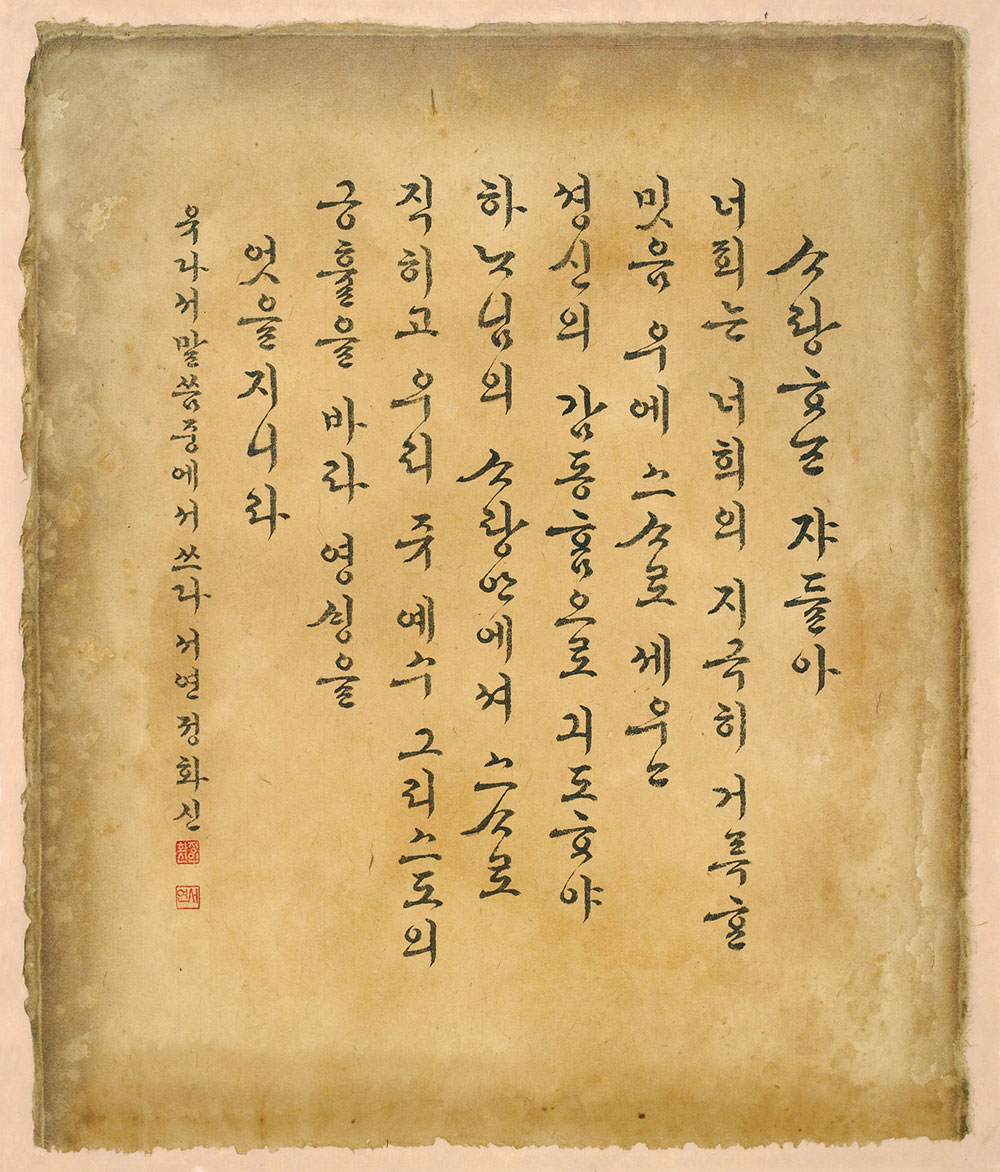 ᄉᆞ랑ᄒᆞᄂᆞᆫ 쟈들아
너희는 너희의 지극히 거륵ᄒᆞᆫ
밋음 우에 스ᄉᆞ로 세우고
셩신의 감동ᄒᆞᆷ으로 긔도ᄒᆞ야
하ᄂᆞ님의 ᄉᆞ랑안에셔 스ᄉᆞ로
직히고 우리 쥬 예수 그리스도의
긍휼을 바라 영ᄉᆡᆼ을
엇을지니라
유다서말씀중에서 쓰다 서연 정화신
서연